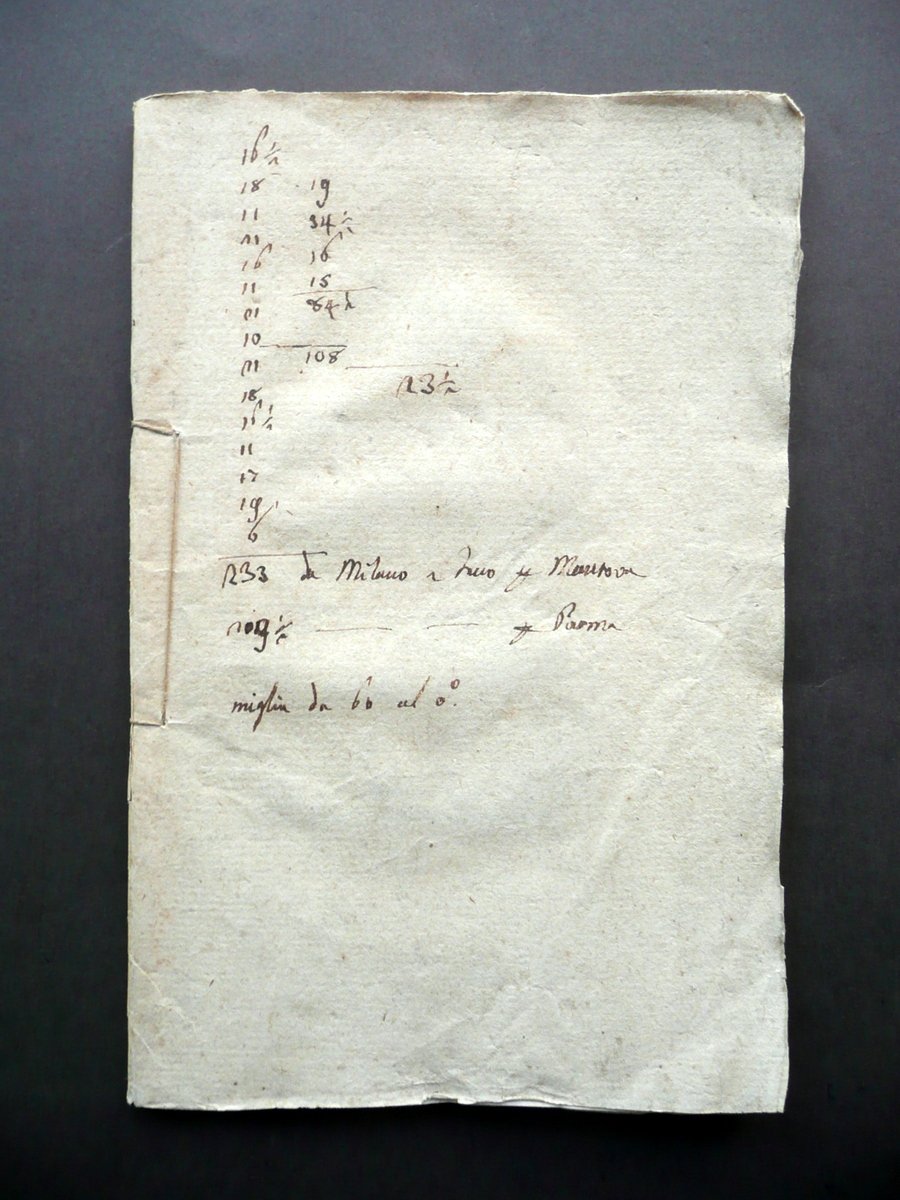 16 ½
18 19
11 34 ½
21 16
16 15
11 84 ½
21
10 108
21 23 ½
18
16 ½
11
17
19
6
233 da Milano a Fano p Mantova
209 ½ — — p Parma
miglia da 60 al 0°.